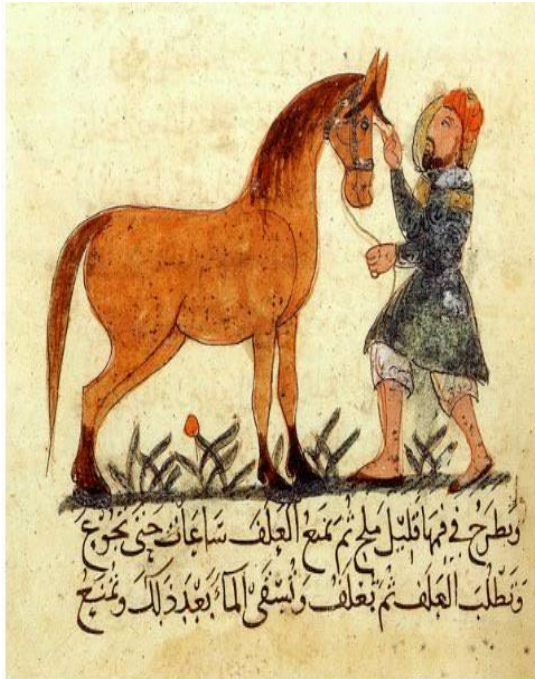 وَيُطرَحُ في فمِهَا قَليْل مِلحٍ ثم تمنَعُ العَلف سَاعَاتٍ حَتى تَجُوْعَ
وَتَطلُبَ العَلَفَ ثم تُعْلفُ وَتُسْقَى المَاءَ بَعْدَ ذَلكَ وَتُمْنَعُ